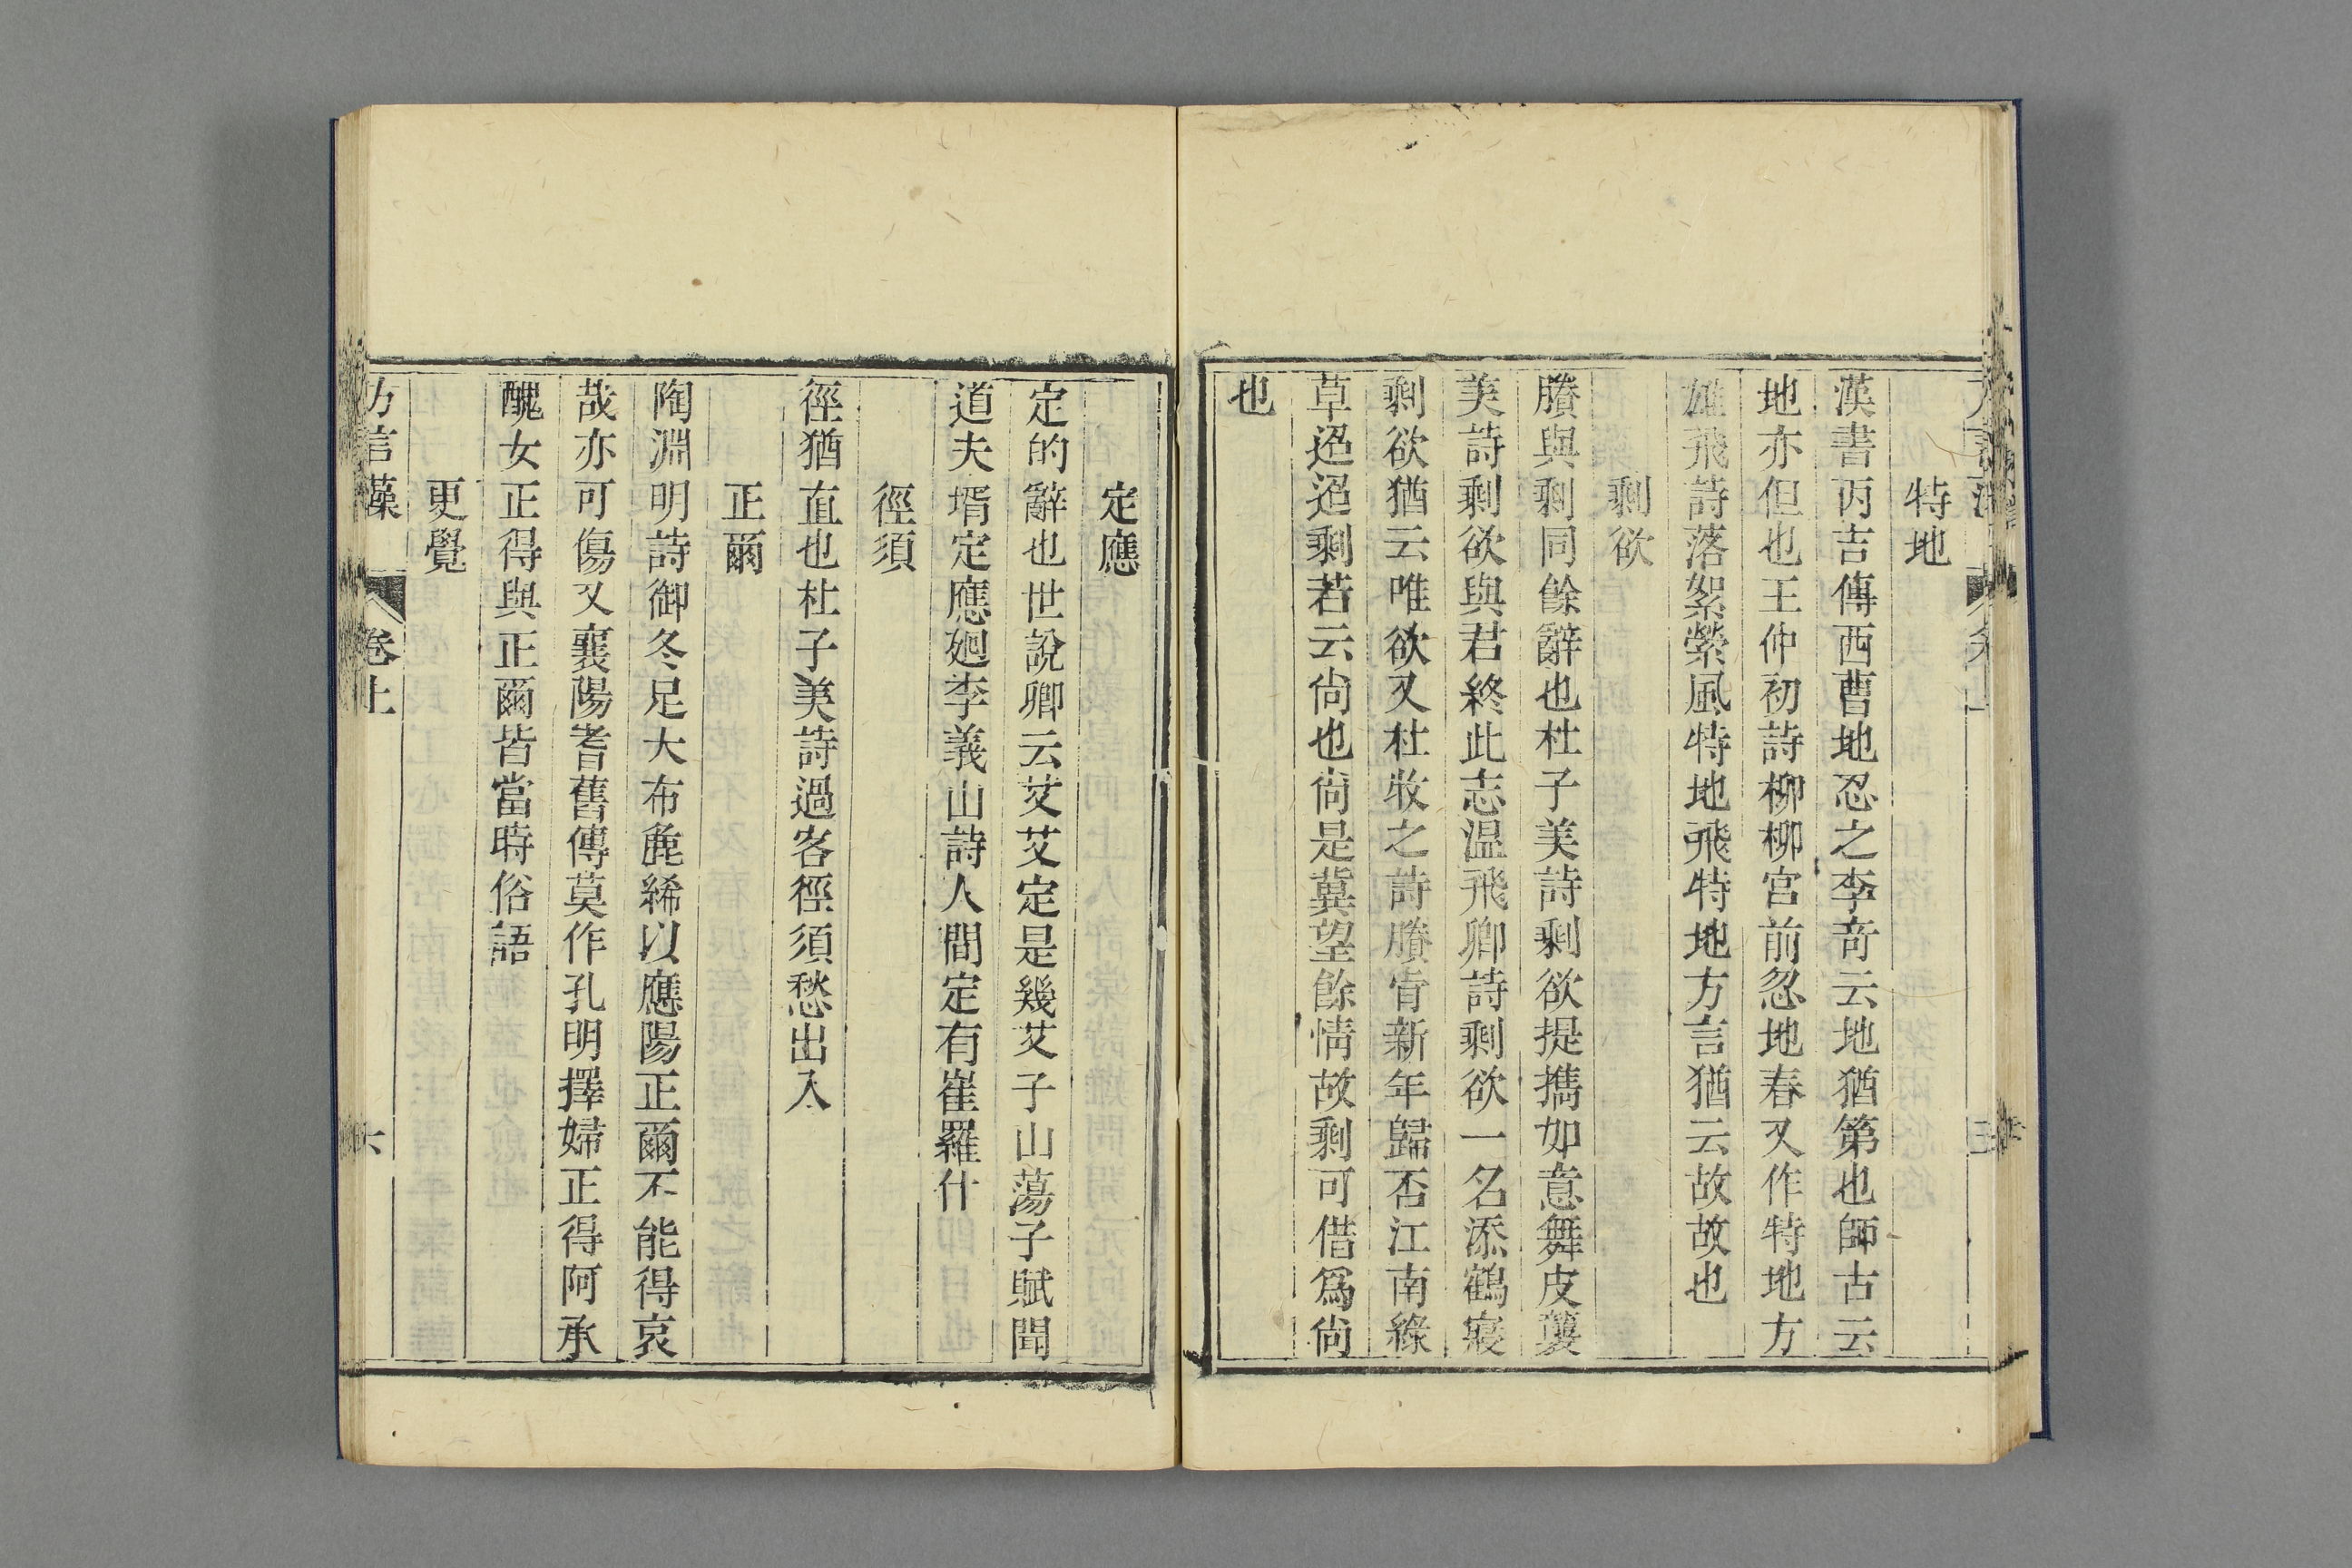 特地
漢書丙吉傳西曹地忍之李竒云地猶第也師古云
地亦但也王仲初詩柳柳宫前忽地春又作特地方
雄飛詩落絮縈風特地飛特地方言猶云故故也
剩欲
賸與剩同餘辭也杜子美詩剩欲提擕如意舞皮襲
美詩剩欲與君終此志温飛卿詩剩欲一名添鶴寢
剩欲猶云唯欲又杜牧之詩賸肯新年歸否江南綠
草迢迢剩若云尙也尙是冀望餘情故剩可借爲尙
也
定應
定的辭也世說卿云艾艾定是幾艾子山蕩子賦聞
道夫壻定應廻李義山詩人間定有崔羅什
徑須
徑猶直也杜子美詩過客徑須愁出入
正爾
陶淵明詩御冬足大布麄絺以應陽正爾不能得哀
哉亦可傷又襄陽耆舊傳莫作孔明擇婦正得阿承
醜女正得與正爾皆當時俗語
更覺
方言藻
卷上
六